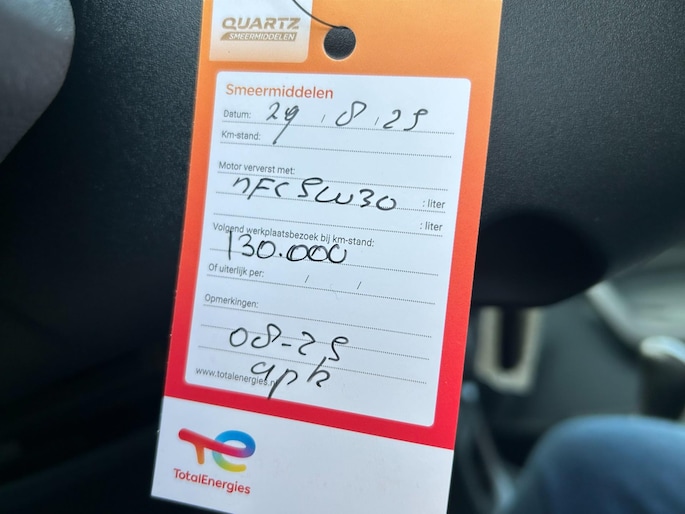 QUARTZ
SMEERMIDDELEN
Smeermiddelen
Datum: 29 / 8 / 25
Km-stand:
Motor ververst met:
nFC 5W30 : liter
: liter
Volgend werkplaatsbezoek bij km-stand:
130.000
Of uiterlijk per: / /
Opmerkingen:
08-25
apk
www.totalenergies.nl
TotalEnergies